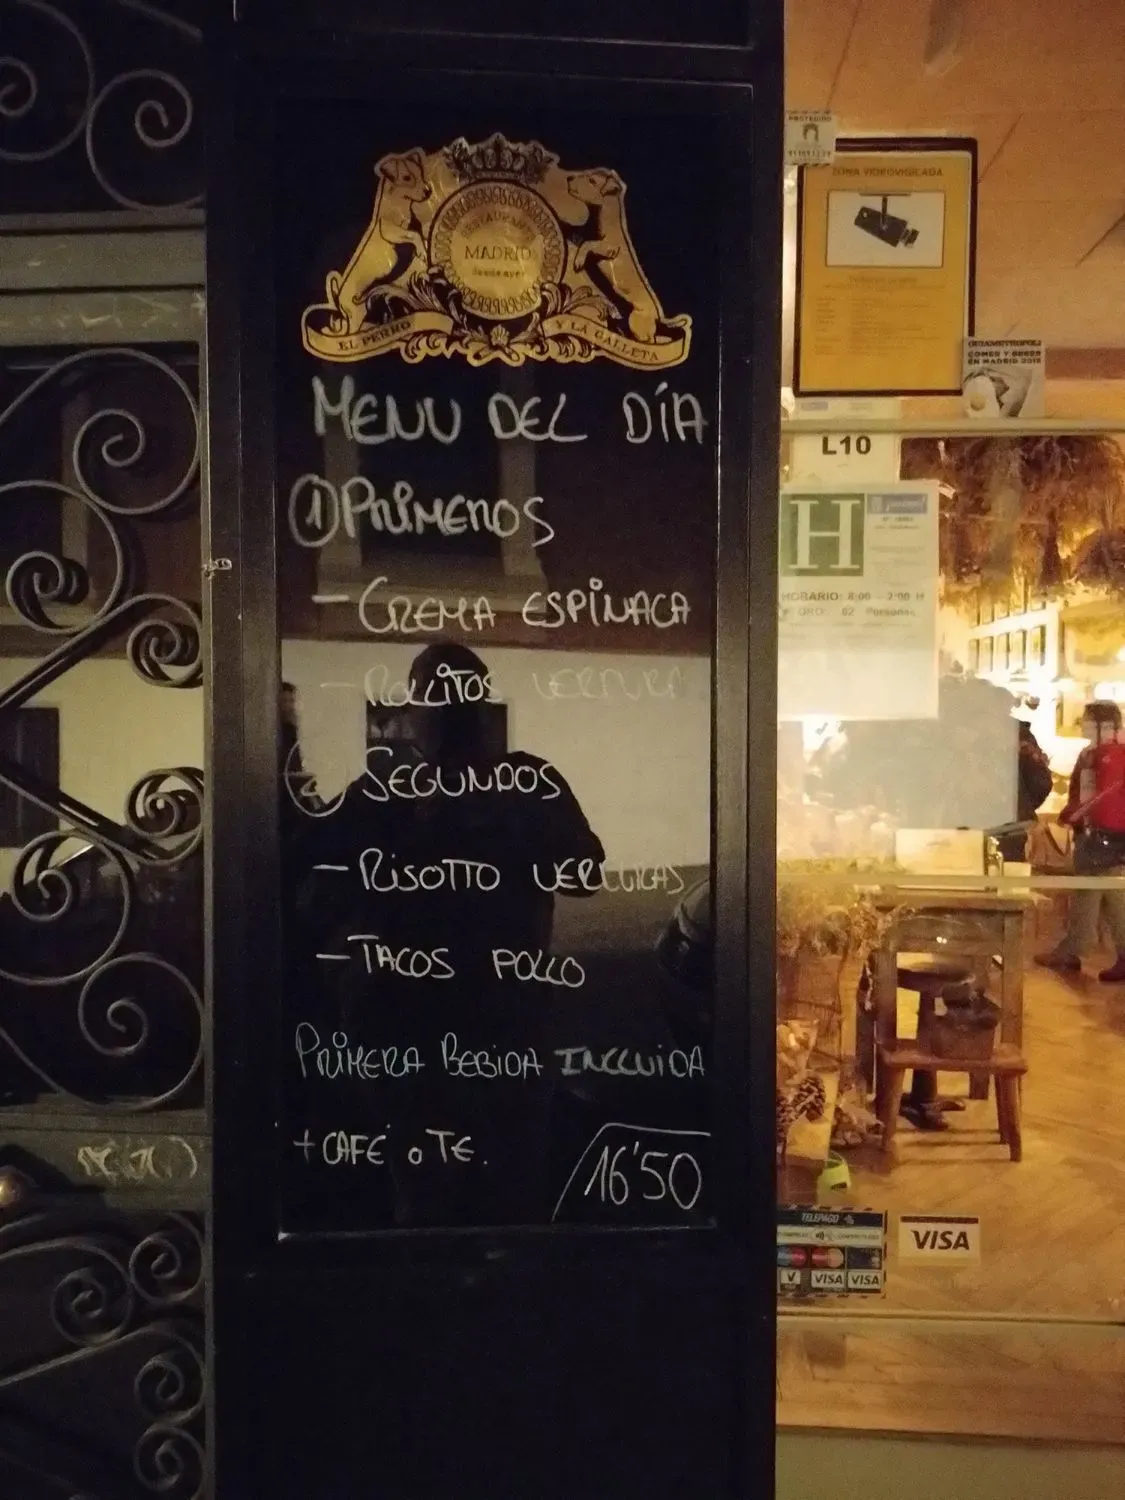 RESTAURANTE
MADRID
desde ayer
EL PERRO Y LA GALLETA
MENU DEL DÍA
① PRIMEROS
- CREMA ESPINACA
- ROLLITOS VERDURA
② SEGUNDOS
- RISOTTO VERDURAS
- TACOS POLLO
PRIMERA BEBIDA INCLUIDA
+ CAFÉ o TE.
16'50
PROTEGIDO
ZONA VIDEOVIGILADA
GUIAMETROPOLI
COMER Y BEBER
EN MADRID 2018
L10
H
HORARIO: 8:00 - 2:00 H
AFORO: 82 Personas
TELEPAGO
V VISA VISA
VISA